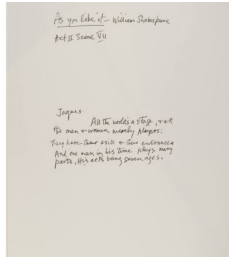 As you Like it - William Shakespeare
Act II Scene VII
Jaques.
All the worlds a stage, + all
the men + women merely players:
They have their exits + their entrances
And one man in his time plays many
parts, His acts being seven ages.